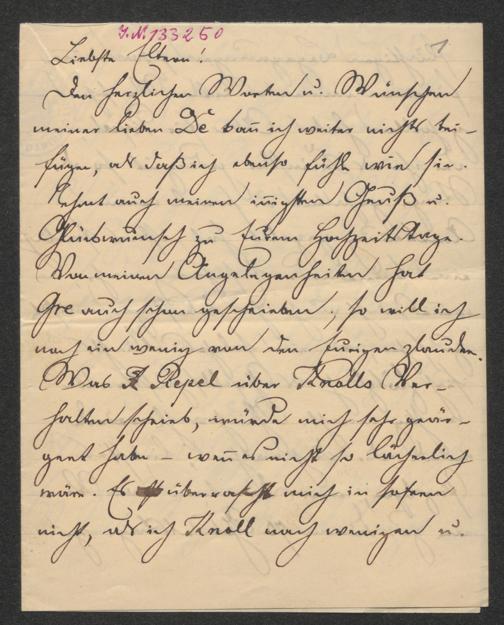 J.N. 133260
1
Liebste Eltern!
Den herzlichen Worten u. Wünschen
meiner lieben De kann ich weiter nichts bei-
fügen, als daß ich ebenso fühle wie sie.
Nehmt auch meinen innigsten Gruß u.
Glückwunsch zu Eurem Hochzeitstage.
Von meinen Angelegenheiten hat
Gre auch schon geschrieben, so will ich
noch ein wenig von den Eurigen plaudern.
Was Repel über Knolls Ver-
halten schrieb, würde mich sehr geär-
gert haben – wenn es nicht so lächerlich
wäre. Es überrascht mich in sofern
nicht, als ich Knoll nach wenigen u.